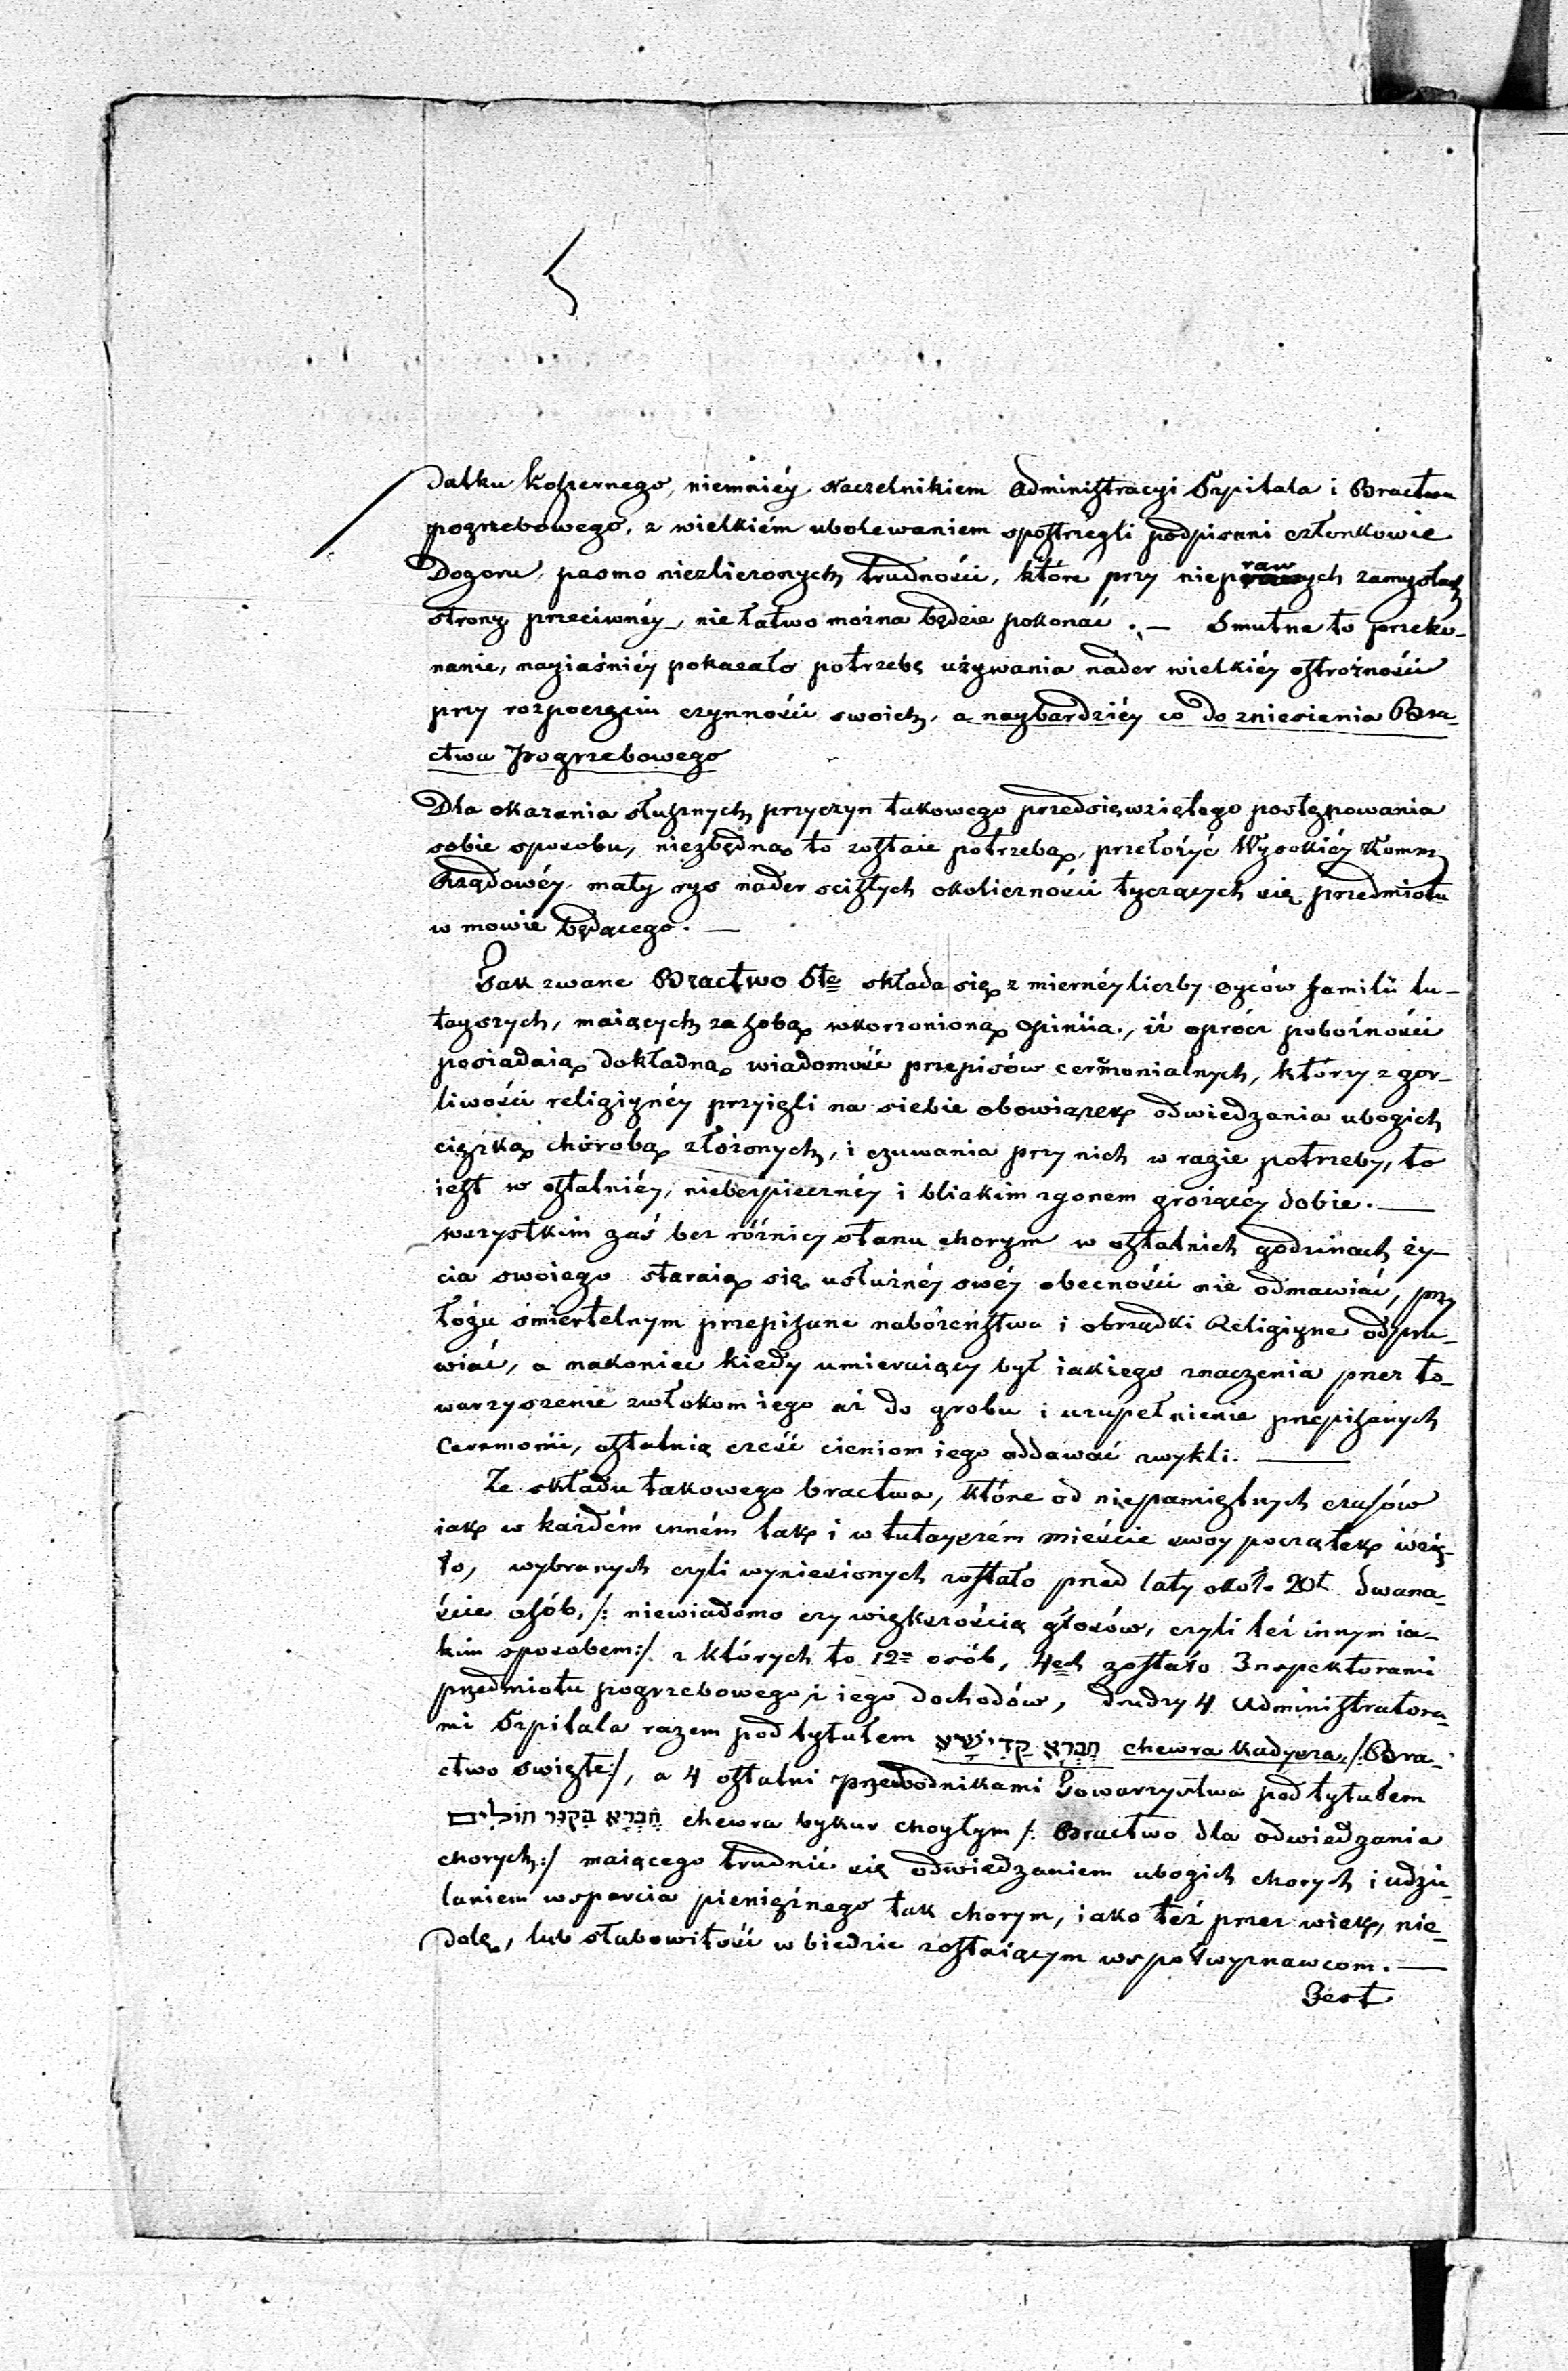 datku koszernego, niemniéy Naczelnikiem Administracyi Szpitala i Bractwa
pogrzebowego, z wielkiém ubolewaniem spostrzegli podpisani członkowie
Dozoru, pasmo niezliczonych trudności, które przy nieprawych zamysłach
strony przeciwnéy, nie łatwo można będzie pokonać. — Smutne to przeko-
nanie, nayiaśniéy pokazało potrzebę używania nader wielkiéy ostrożności
przy rozpoczęciu czynności swoich, a naybardziéy co do zniesienia Bra-
ctwa Pogrzebowego
Dla okazania słusznych przyczyn takowego przedsięwziętego postępowania
sobie sposobu, niezbędną to zostaie potrzebą, przełożyć Wysokiéy Komm:
Rządowéy mały rys nader scisłych okoliczności tyczących się przedmiotu
w mowie będącego. —
Tak zwane Bractwo Ste składa się z miernéy liczby oyców familii tu-
tayszych, maiących za sobą wkorzenioną opiniią, iż oprócz pobożności
posiadaią dokładną wiadomość przepisów ceremonialnych, którzy z gor-
liwości religiynéy przyięli na siebie obowiązek odwiedzania ubogich
ciężką chorobą złożonych, i czuwania przy nich w razie potrzeby, to
iest w ostatniéy, niebezpiecznéy i bliskim zgonem grożącéy dobie. —
wszystkim zaś bez różnicy stanu chorym w ostatnich godzinach ży-
cia swoiego staraią się usłużnéy swéy obecności nie odmawiać, przy
łóżu śmiertelnym przepisane nabożeństwa i obrządki Religiyne odpra-
wiać, a nakoniec kiedy umieraiący był iakiego znaczenia przez to-
warzyszenie zwłokom iego aż do grobu i uzupełnienie przepisanych
Ceremonii, ostatnią cześć cieniom iego oddawać zwykli. —
Ze składu takowego bractwa, które od niepamiętnych czasów
iak w każdém inném tak i w tutayszém mieście swoy początek wzię-
ło, wybranych czyli wyniesionych zostało przed laty około 20t dwana-
ście osób, /: niewiadomo czy większością głosów, czyli też innym ia-
kim sposobem:/ z których to 12u osób, 4ech zostało Inspektorami
przedmiotu pogrzebowego i iego dochodów, drudzy 4 Administratora-
mi Szpitala razem pod tytułem חֶבְרָא קַדִישָׁא chewra kadysza, /: Bra-
ctwo święte:/, a 4 ostatni przewodnikami Towarzystwa pod tytułem
חֶבְרָא בִּקּוּר חוֹלִים chewra bykur choylym /: Bractwo dla odwiedzania
chorych:/ maiącego trudnić się odwiedzaniem ubogich chorych i udzie-
laniem wsparcia pieniężnego tak chorym, iako też przez wiek, nie-
dolę, lub słabowitość w biedzie zostaiącym współwyznawcom. —
Jest